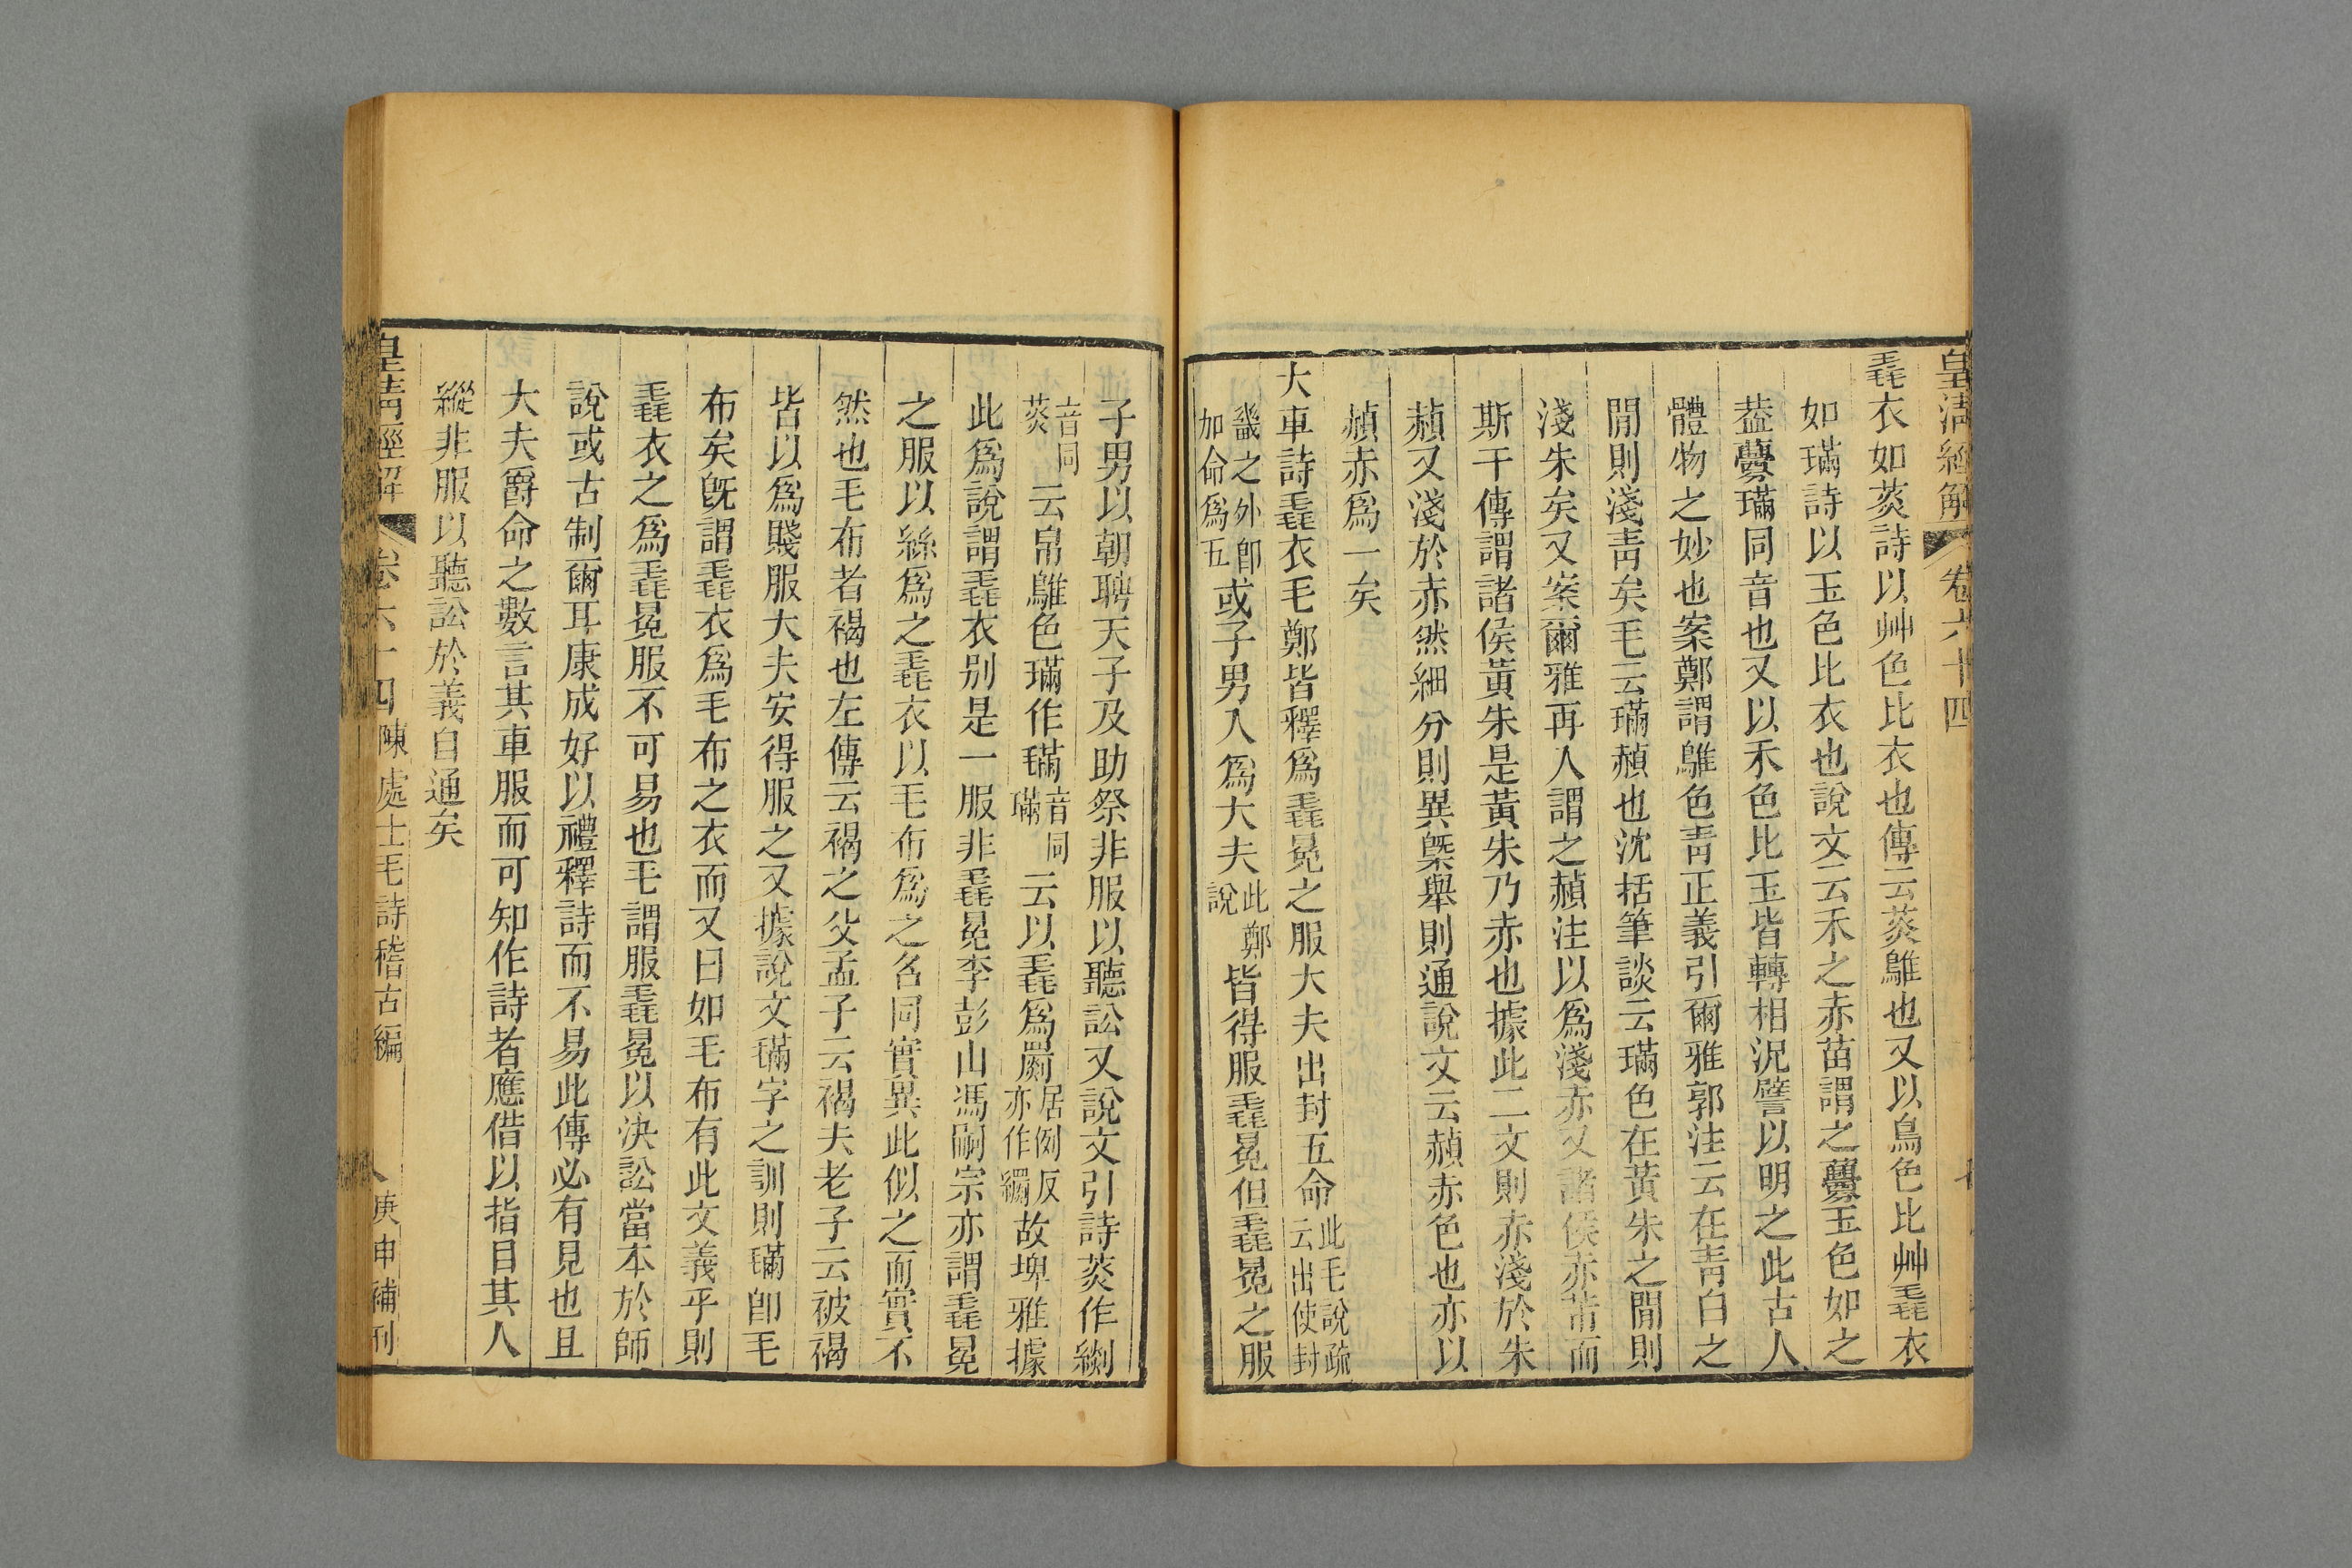 皇清經解 卷六十四
毳衣如菼詩以艸色比衣也傳云菼鵻也又以鳥色比艸毳衣
如璊詩以玉色比衣也說文云禾之赤苗謂之虋玉色如之
葢虋璊同音也又以禾色比玉皆轉相況譬以明之此古人
體物之妙也案鄭謂鵻色靑正義引爾雅郭注云在靑白之
閒則淺靑矣毛云璊赬也沈括筆談云璊色在黃朱之閒則
淺朱矣又案爾雅再入謂之赬注以為淺赤又諸侯赤芾而
斯干傳謂諸侯黃朱是黃朱乃赤也據此二文則赤淺於朱
赬又淺於赤然細分則異槩舉則通說文云赬赤色也亦以
赬赤為一矣
大車詩毳衣毛鄭皆釋為毳冕之服大夫出封五命此毛說疏云出使封
畿之外卽加命為五或子男入為大夫此鄭說皆得服毳冕但毳冕之服
子男以朝聘天子及助祭非服以聽訟又說文引詩菼作緂
音同菼云帛鵻色璊作𣯩音同璊云以毳為罽居例反亦作𦇧故埤雅據
此為說謂毳衣别是一服非毳冕李彭山馮嗣宗亦謂毳冕
之服以絲為之毳衣以毛布為之名同實異此似之而實不
然也毛布者褐也左傳云褐之父孟子云褐夫老子云被褐
皆以為賤服大夫安得服之又據說文𣯩字之訓則𣯩卽毛
布矣旣謂毳衣為毛布之衣而又曰如毛布有此文義乎則
毳衣之為毳冕服不可易也毛謂服毳冕以決訟當本於師
說或古制爾耳康成好以禮釋詩而不易此傳必有見也且
大夫爵命之數言其車服而可知作詩者應借以指目其人
縱非服以聽訟於義自通矣
皇清經解 卷六十四 陳處士毛詩稽古編 庚申補刊